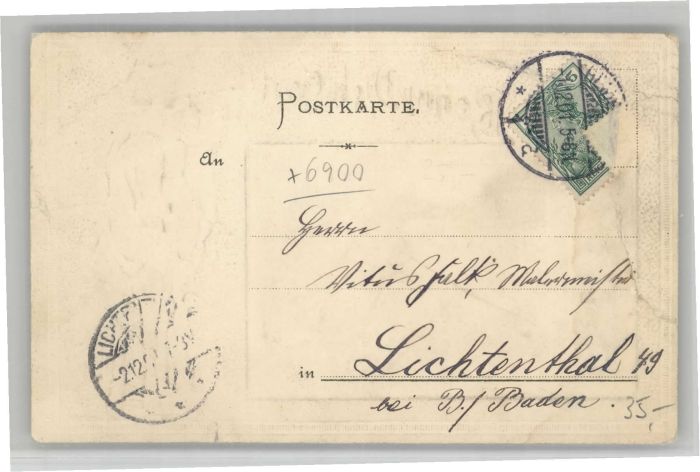 POSTKARTE.
An
+6900
Herrn
Vitus Falk, Malermeister
in Lichtenthal 49
bei B./Baden.
35,-
LICHT
-2.12.
5-6N